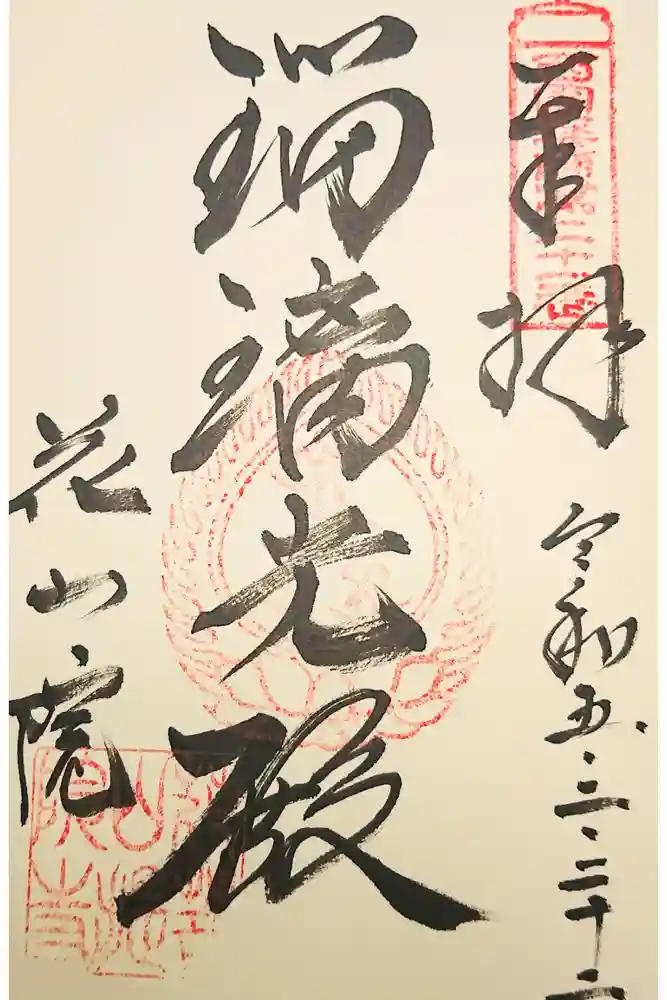 奉拝
令和五.三.二十二
瑠璃光殿
花山院